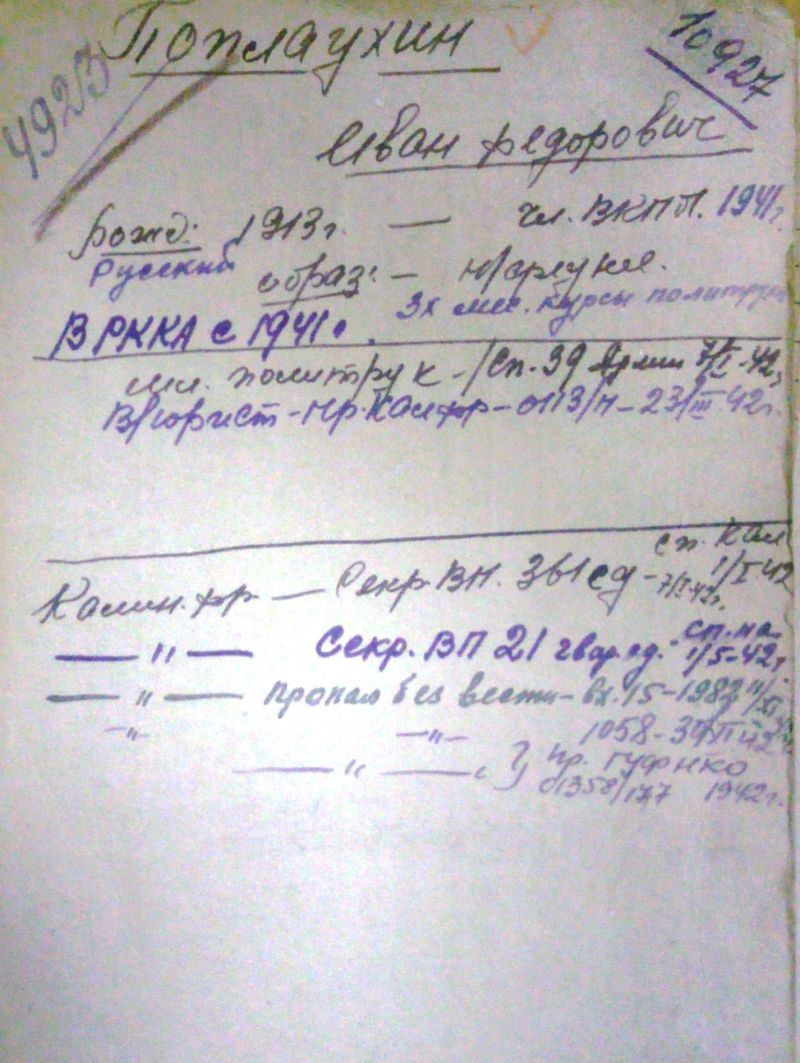 Поплаухин
10927
4923
Иван Федорович
Рожд: 1913 г. — чл. ВКПб. 1941 г.
Русский образ: —
3х мес. курсы политрук
В РККА с 1941 г.
мл. политрук - сп. 39 Армии 7/I-42г
В/юрист - пр. Кал фр - 0113/н - 23/III-42г.
сп. Кал
Калин. фр — Секр. ВП. 361 сд - 7/I-42г. 1/I-42
— " — Секр. ВП 21 гвар сд. сп. на 1/5-42г.
— " — пропал без вести - вх. 15-1982
— " — — " — 1058-
— " — пр. ГУФНКО
01358/177 1942 г.